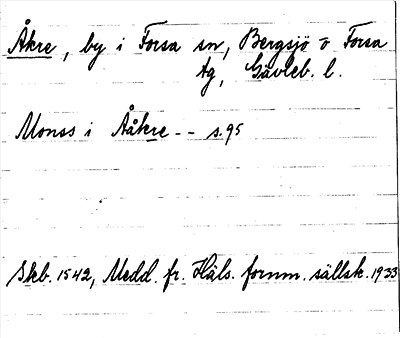 Åkre, by i Forsa sn, Bergsjö o Forsa
tg, Gävleb. l.
Monss i Ååkre -- s. 95
Skb. 1542, Medd. fr. Häls. fornm. sällsk. 1933